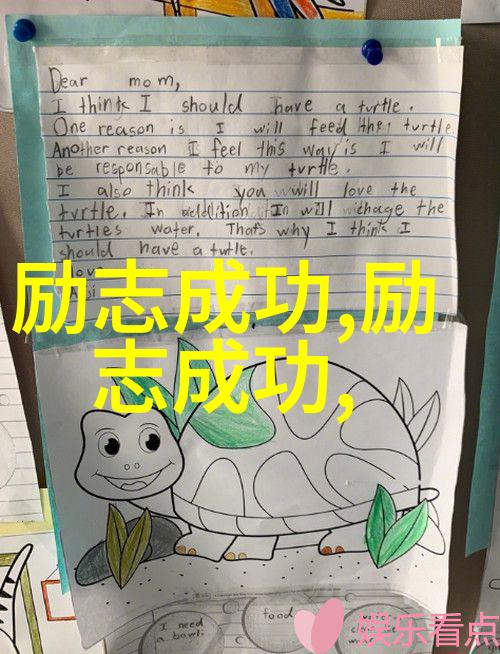 Dear mom,
I think I should have a turtle.
One reason is I will feed the turtle
Another reason I feel this way is I will
be responsable to my turtle.
I also think you will love the
turtle. In addition I will chage the
turtles water. That's why I think I
should have a turtle.
love
励志成功,励
志成功,
I need
a bowl
food
娱乐看点